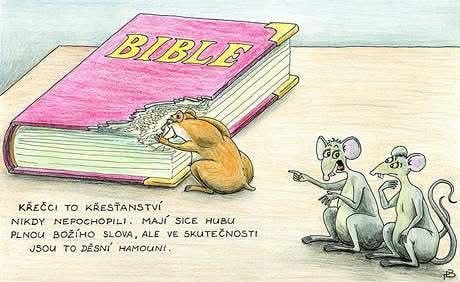 BIBLE
KŘEČCI TO KŘESŤANSTVÍ
NIKDY NEPOCHOPILI. MAJÍ SICE HUBU
PLNOU BOŽÍHO SLOVA, ALE VE SKUTEČNOSTI
JSOU TO DĚSNÍ HAMOUNI.